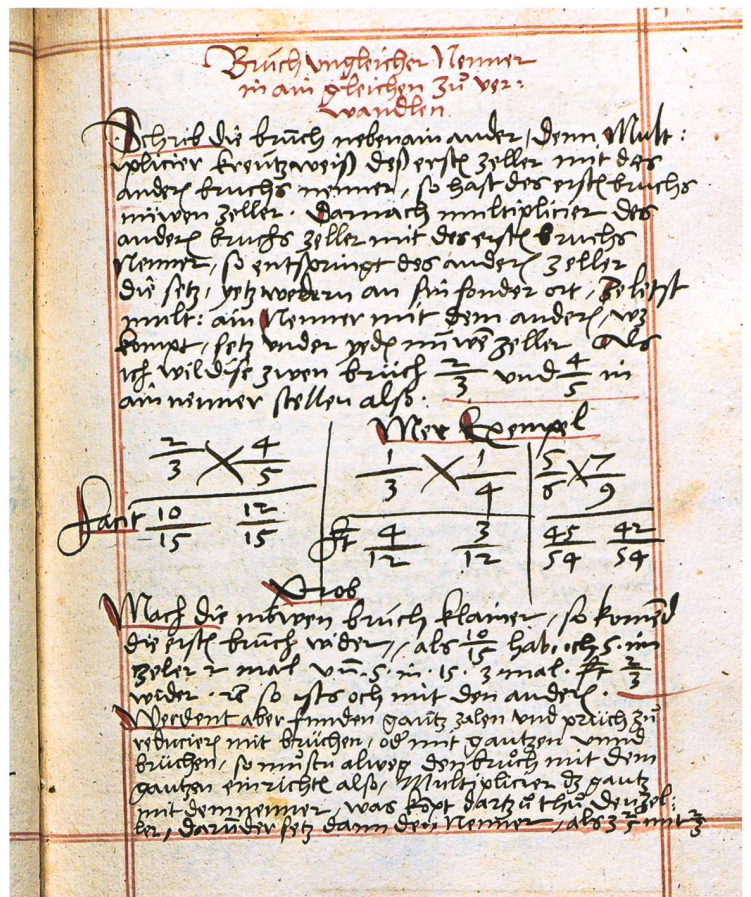 Bruch ungleicher Nenner
in ain gleichen zů ver:
wandlen.
Schreib die brüch nebenainander, denn Mult:
iplicier kreutzweiß deß ersten zeller mit des
andern bruchs nenner, so hast des ersten bruchs
nüwen zeller. Darnach multiplicier des
andern bruchs zeller mit des ersten bruchs
Nenner, so entspringt des andern zeller
die setz, yetzwedern an sin sonder ort, Zeletst
mult: ain Nenner mit dem andern, wz
kompt, setz under yeden nüwen zeller Als
ich wil dise zwen brüch 2/3 und 4/5 in
ain nenner stellen also.
Mer Exempel
2/3 X 4/5 1/3 X 1/4 5/6 X 7/9
Facit 10/15 12/15 ft 4/12 3/12 45/54 42/54
Prob
Mach die nüwen bruch klainer, so komend
die ersten brüch wider, als 10/15 hab ich 5 im
zeler 2 mal und .5. in .15. 3 mal. ft 2/3
wider. so ists och mit den andern.
Werdent aber funden gantz zalen und prüch zů
reducieren mit brüchen, oder mit gantzen unnd
brüchen, so můstu alweg den bruch mit dem
gantzen einrichten also, Multiplicier dz gantz
mit dem nenner, was kompt dartzů thů den zel:
ler, darunder setz dann den Nenner, als 3 2/5 mit 2/3